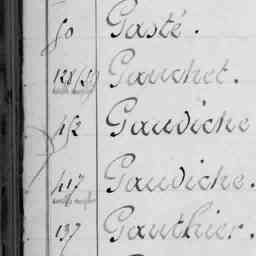 50 Gasté.
128 Gauchet.
452 Gaudiche
417 Gaudiche.
137 Gauthier.